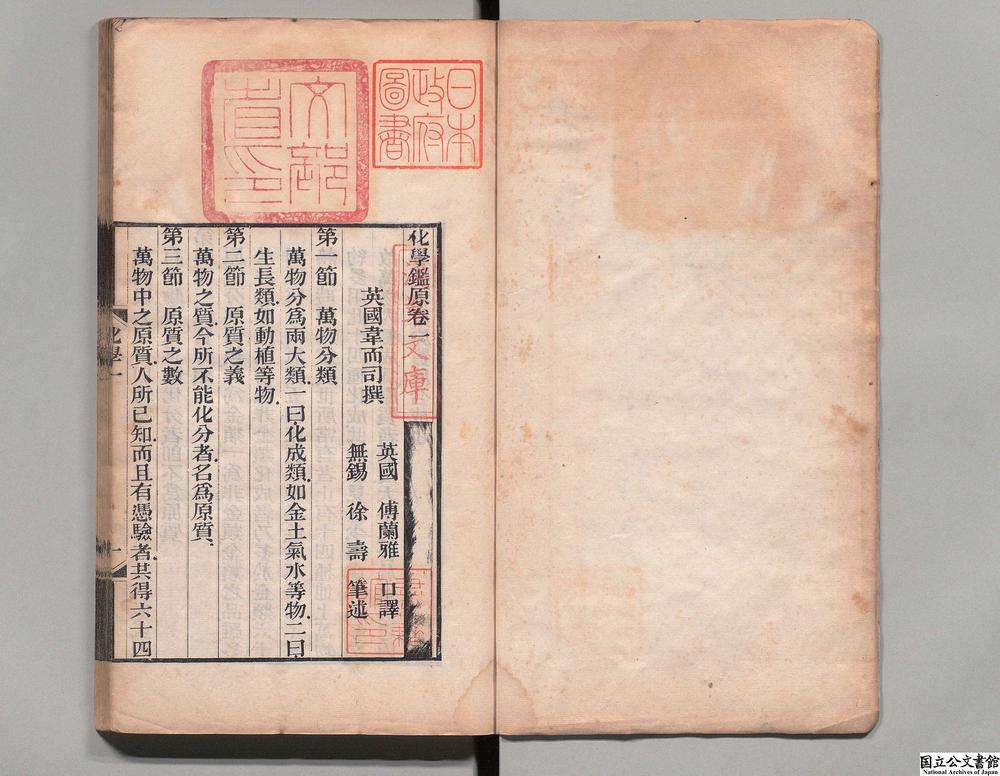 日本
政府
圖書
文部
省印
化學鑑原卷一
文庫
英國韋而司撰
英國 傅蘭雅 口譯
無錫 徐壽 筆述
第一節 萬物分類
萬物分爲兩大類、一曰化成類、如金土氣水等物、二曰
生長類、如動植等物、
第二節 原質之義
萬物之質、今所不能化分者、名爲原質、
第三節 原質之數
萬物中之原質、人所已知、而且有憑驗者、共得六十四、
化學一
一
国立公文書館
National Archives of Japan